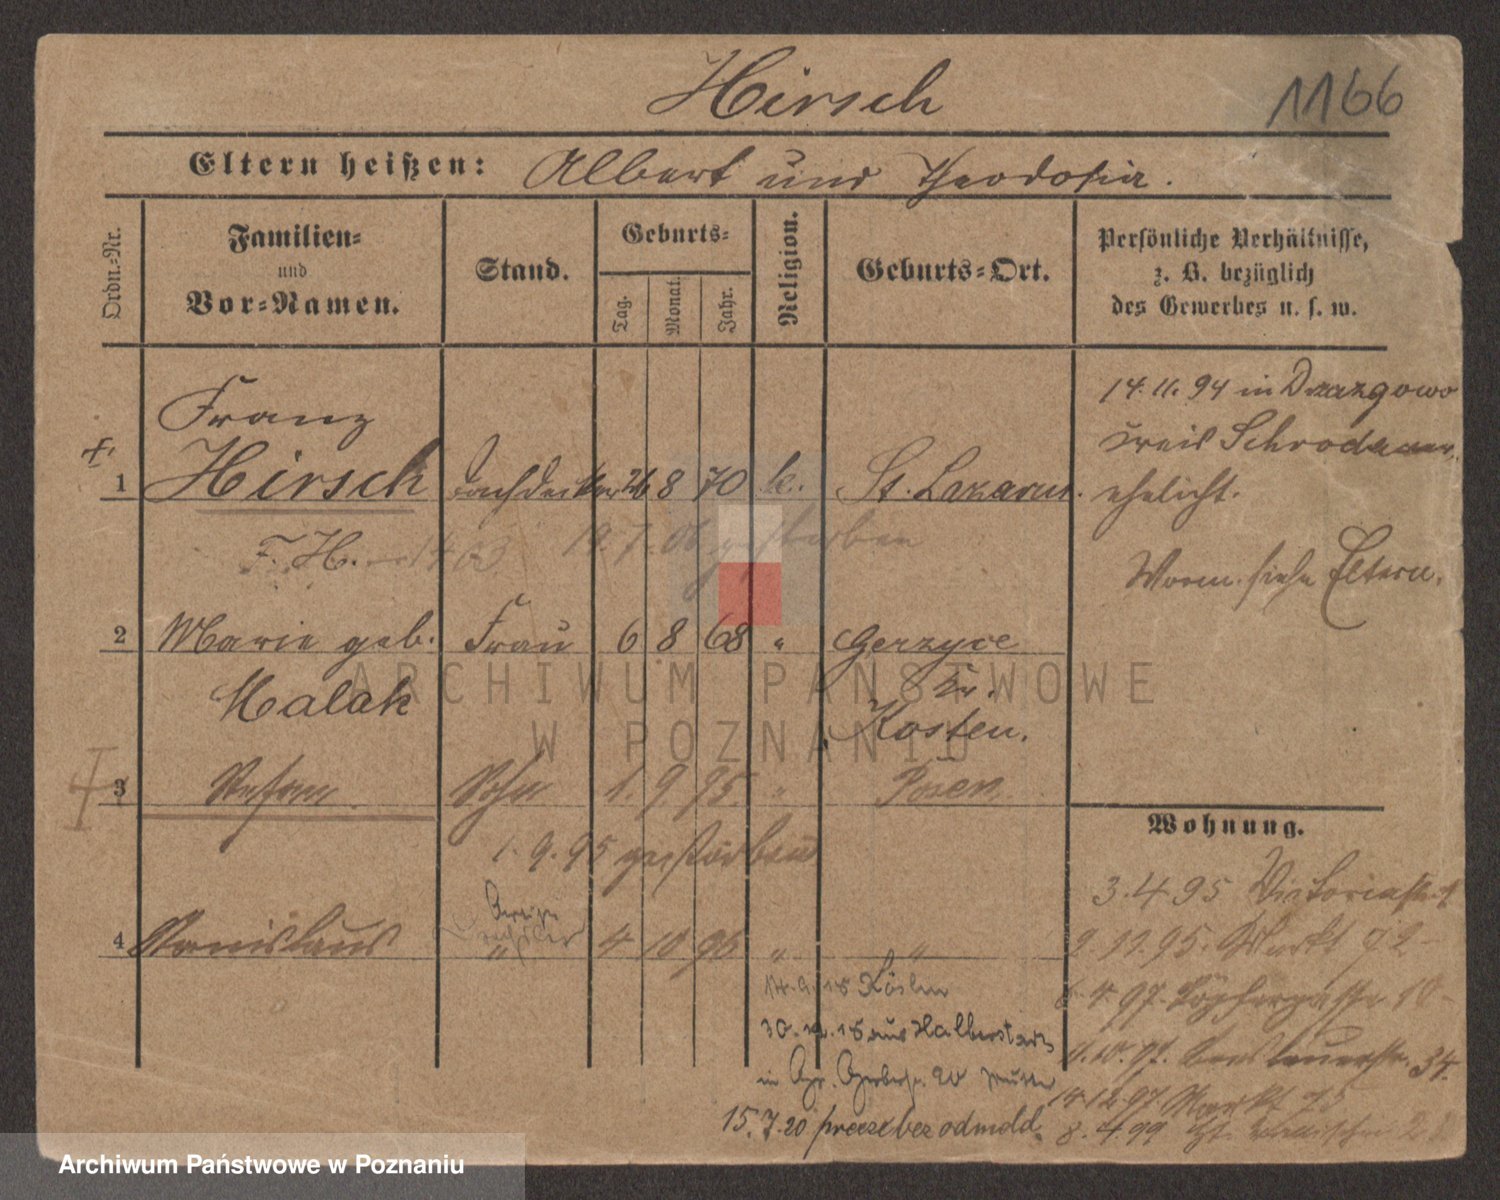 Hirsch
1166
Eltern heißen: Albert und Theodosia.
Ordn.-Nr.
Familien-
und
Vor-Namen.
Stand.
Geburts-
Tag.
Monat.
Jahr.
Religion.
Geburts-Ort.
Persönliche Verhältnisse,
z. B. bezüglich
des Gewerbes u. s. w.
Franz
1 Hirsch Dachdecker 26 8 70 k. St. Lazarus.
14.11.94 in Drazgowo
Kreis Schroda
ehelicht.
F. H. 19.7.06 gestorben
Worm. siehe Eltern.
2 Marie geb. Frau 6 8 68 " Gerzyce
Malak
Kr.
Kosten.
3 Stefan Sohn 1. 9. 95. " Posen
1.9.95 gestorben
4 Stanislaus " 4 10 96 " "
14.9.18 Köslin
30. 18 aus Halberstadt
in Gr. Gerberstr. 20 Mutter
15.7.20 przez bez odmeld.
Wohnung.
3.4.95 Victoriastr.
2.11.95. Markt 72
6.4.97. Töpfergasse 10
11.10.97. Breslauerstr. 34.
14.12.97. Markt 75
8.4.99 St.
ARCHIWUM PAŃSTWOWE
W POZNANIU
Archiwum Państwowe w Poznaniu